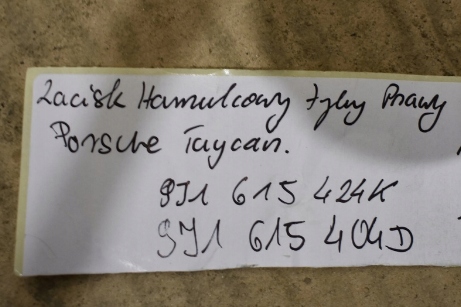 Zacisk Hamulcowy Tylny Prawy
Porsche Taycan.
9J1 615 424K
9J1 615 404D